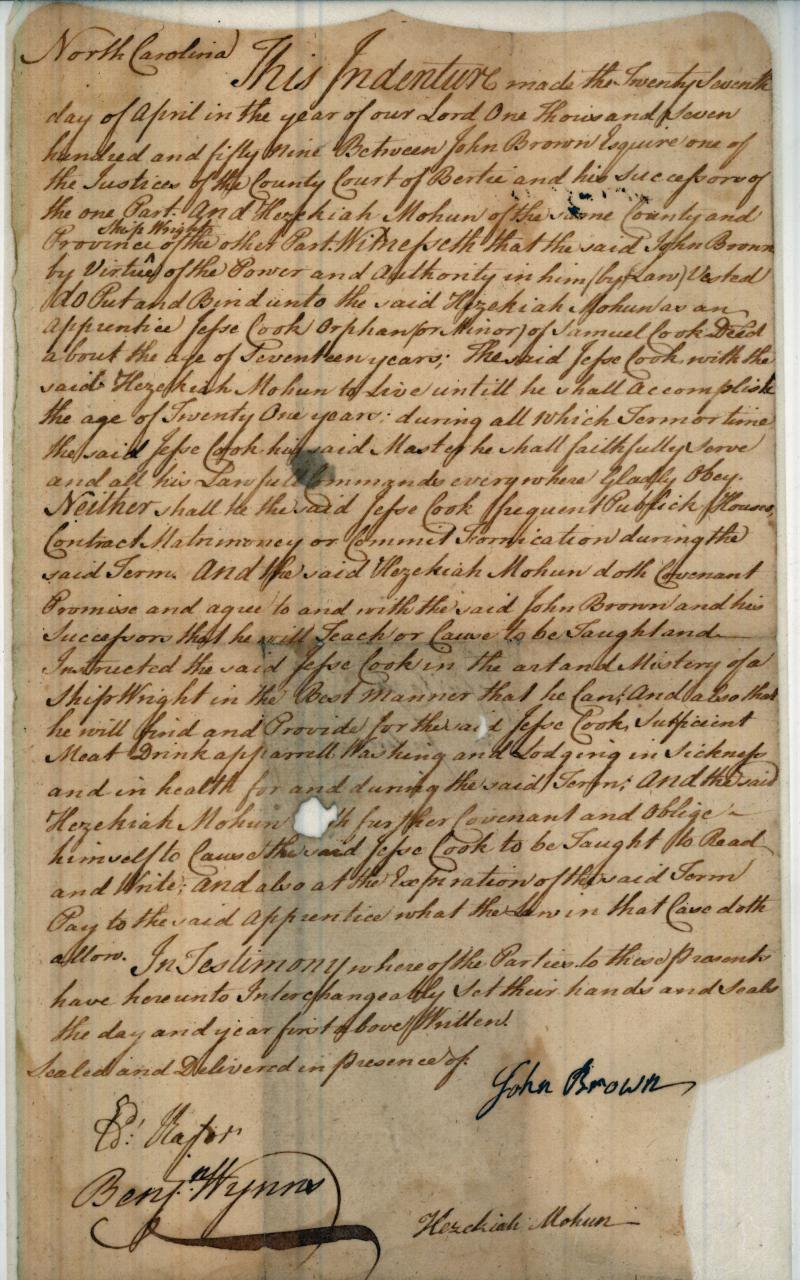 North Carolina
This Indenture made the Twenty Seventh
day of April in the year of our Lord One Thousand Seven
hundred and fifty Nine Between John Brown Esquire one of
the Justices of the County Court of Bertie and his Successors of
the one Part. And Hezekiah Mohun of the same County and
Ship Wright
Province of the other Part. Witnesseth that the said John Brown
by Virtue of the Power and Authority in him (by Law) Vested
do Put and Bind unto the said Hezekiah Mohun as an
apprentice Jesse Cook Orphan (or Minor) of Samuel Cook Decd
about the age of Seventeen years; The said Jesse Cook with the
said Hezekiah Mohun to Live untill he shall accomplish
the age of Twenty One years; during all which Term or time
the said Jesse Cook his said Master he shall faithfully Serve
and all his Lawfull Commands everywhere Gladly Obey.
Neither shall he the said Jesse Cook frequent Publick Houses,
Contract Matrimoney or Commit Fornication during the
said Term. And the said Hezekiah Mohun doth Covenant
Promise and agree to and with the said John Brown and his
Successors that he will Teach or Cause to be Taught and
Instructed the said Jesse Cook in the art and Mistery of a
Ship Wright in the Best Manner that he Can; And also that
he will find and Provide for the said Jesse Cook, Sufficient
Meat Drink apparrell Washing and Lodging in Sickness
and in health for and during the said Term; And the said
Hezekiah Mohun further Covenant and Oblige
himself to Cause the said Jesse Cook to be Taught to Read
and Write; And also at the Expiration of the said Term
Pay to the said Apprentice what the Law in that Case doth
allow. In Testimony whereof the Parties to these Presents
have hereunto Interchangeably Set their hands and Seals
the day and year first above Written.
Sealed and Delivered in presence of.
John Brown
Benja. Wynns
Hezekiah Mohun